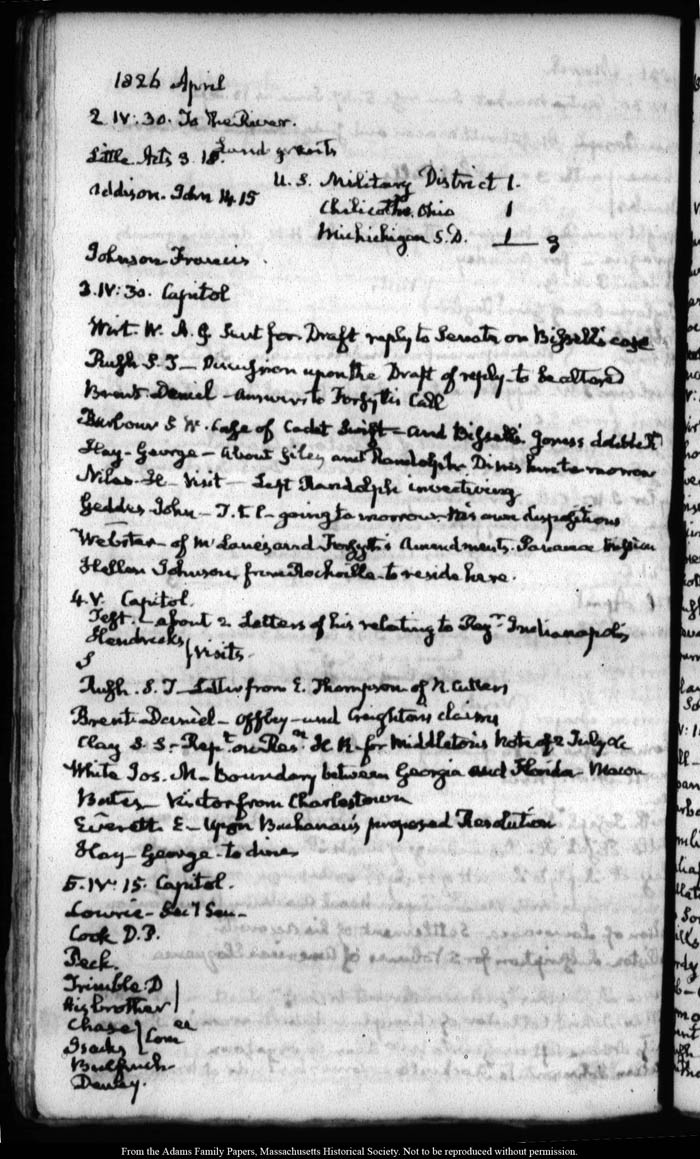 1826 April
2 IV:30. To the River.
Little. Acts 3. 18. Land grants
U. S. Military District 1.
Addison. John 14. 15
Chilicothe. Ohio 1
Michichigan S.D. 1 — 3
Johnson Francis.
3. IV:30. Capitol
Wirt. W. A. G. Sent for. Draft reply to Senate on Bissell's case
Rush. S. T — Discussion upon the Draft of reply to be altered
Brent Daniel — answer to Forsyth's Call
Barbour S. W. Case of Cadet Swift — and Bissell's.
Hay — George — about Giles and Randolph. Dines here tomorrow
Niles. H — Visit — Left Randolph invectiving
Geddes John — T. L. — going tomorrow. His own dispositions
Webster — of McLane's and Forsyth's Amendments. Panama Mission
Hellen Johnson, from Rockville to reside here.
4. V. Capitol.
Test. — about 2 Letters of his relating to Indianapolis
Hendricks
visits.
Rush. S. T — Letter from E. Thompson of N. Cutters
Brent — Daniel — Offley — and Creighton's claims
Clay S. S. — Rept. on Resn. H. R. for Middleton's Note of 2 July &c
White Jos. M — Boundary between Georgia and Florida — Macon
Bates — Visitor from Charlestown
Everett. E — Upon Buchanan's proposed Resolution
Hay — George — to dine
5. IV: 15. Capitol.
Lowrie — Secy. Sen —
Cook D. P.
Peck.
Trimble. D
His brother
Chase
Isacks
Comee
Bulfinch
Dewey.
From the Adams Family Papers, Massachusetts Historical Society. Not to be reproduced without permission.